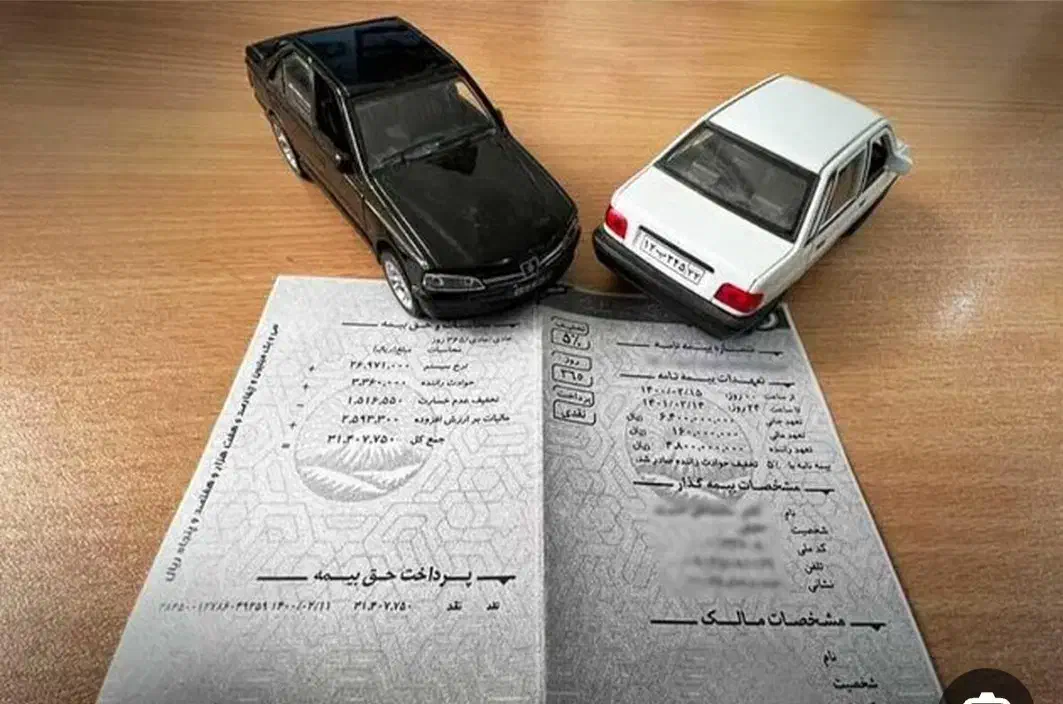 ۱۲ب۳۴۵ ۲۲
تخفیف
۵٪
روز
۳۶۵
پرداخت
نقدی
شماره بیمه نامه
تعهدات بیمه نامه
از ساعت ۰۰ روز: ۱۴۰۰/۰۲/۱۵
تا ساعت ۲۴ روز: ۱۴۰۱/۰۲/۱۴
تعهد جانی ۶,۴۰۰,۰۰۰,۰۰۰ ریال
تعهد مالی ۱۶۰,۰۰۰,۰۰۰ ریال
تعهد راننده ۴,۸۰۰,۰۰۰,۰۰۰ ریال
بیمه نامه با ۵٪ تخفیف حوادث راننده صادر شد.
مشخصات بیمه گذار
نام
شخصیت
کد ملی
تلفن
نشانی
مشخصات مالک
نام
شخصیت
محاسبات و حق بیمه
عادی/عادی/۳۶۵ روز
محاسبات مبلغ(ریال)
نرخ سیستم ۲۶,۹۷۱,۰۰۰ +
حوادث راننده ۳,۳۶۰,۰۰۰ +
تخفیف عدم خسارت ۱,۵۱۶,۵۵۰ -
مالیات بر ارزش افزوده ۲,۵۹۳,۳۰۰ +
جمع کل ۳۱,۴۰۷,۷۵۰ =
سی و یک میلیون و چهارصد و هفت هزار و هفتصد و پنجاه ریال
پرداخت حق بیمه
نقد نقد ۳۱,۴۰۷,۷۵۰ ۱۴۰۰/۰۲/۱۱